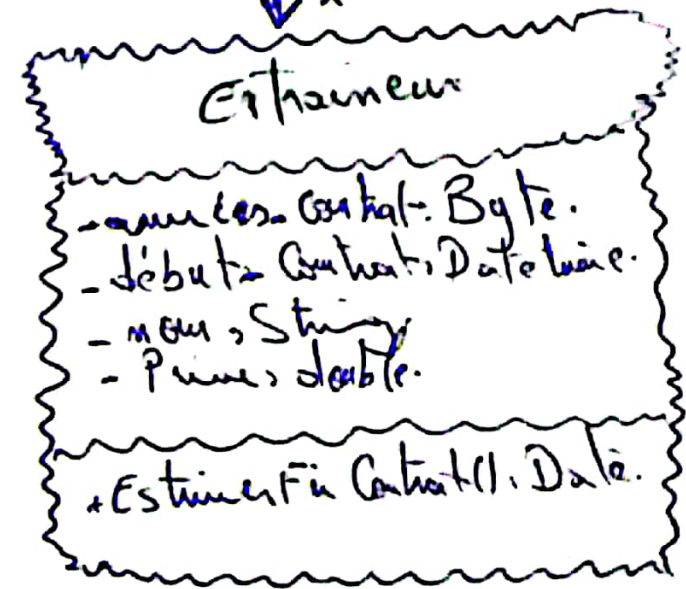 Entraineur
- années_Contrat : Byte.
- début_Contrat : Datetime.
- nom : String
- Prime : double.
+ EstimerFin Contrat() : Date.